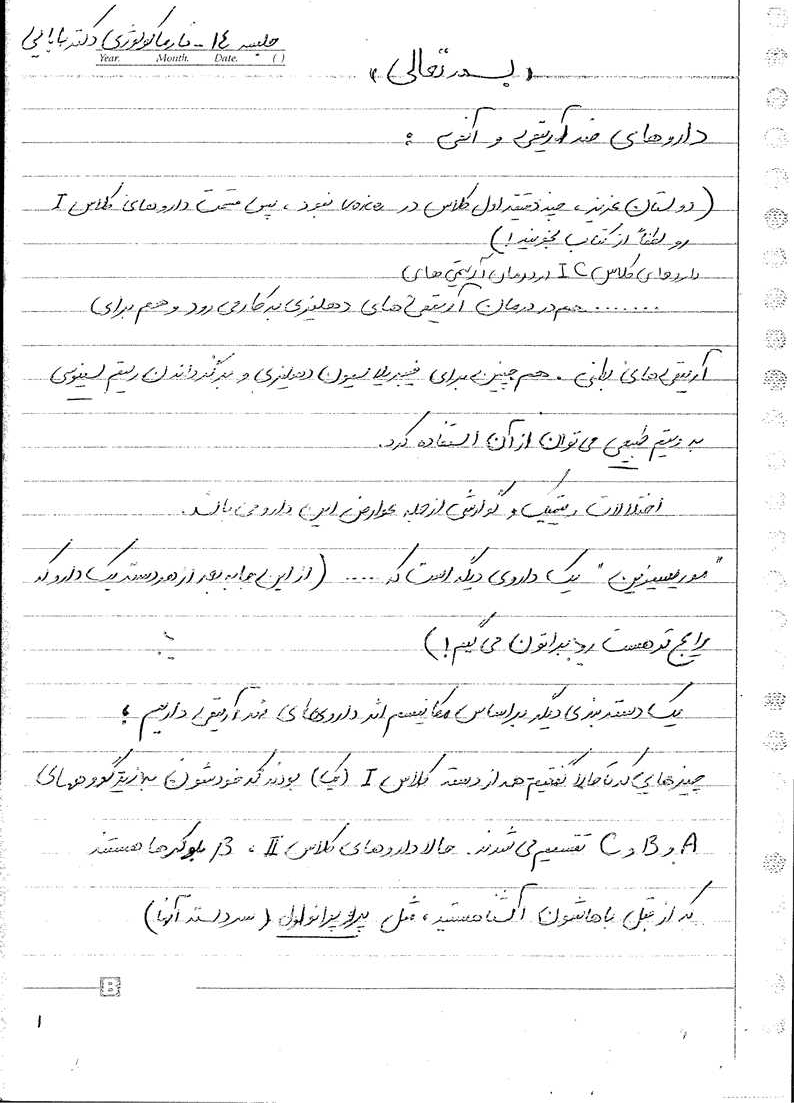 جلسه ١٤ - فارماکولوژی دکتر بابایی
Year. Month. Date. ( )
«بسمه تعالی»
داروهای ضد آریتمی و آنژی :
(دوستان عزیز، چند دقیقه اول کلاس در voice نبود، پس قسمت داروهای کلاس I
رو لطفاً از کتاب بخونید!)
داروهای کلاس IC در درمان آریتمی های
........ هم در درمان آریتمی های دهلیزی به کار می رود و هم برای
آریتمی های بطنی . هم چنین برای فیبریلاسیون دهلیزی و برگرداندن ریتم سینوسی
به ریتم طبیعی می توان از آن استفاده کرد.
اختلالات ریتمیک و گوارشی از جمله عوارض این دارو می باشد.
"موریسیزین" یک داروی دیگه است که .... (از این جا به بعد از هر دسته یک دارو که
رایج تر هست رو براتون می گیم!)
یک دسته بندی دیگر بر اساس مکانیسم اثر داروهای ضد آریتمی داریم :
چیزهایی که تا حالا گفتیم همه از دسته کلاس I (یک) بودند که خودشون به زیر گروههای
A و B و C تقسیم می شدند. حالا داروهای کلاس II ، β بلوکرها هستند
که از قبل باهاشون آشنا هستید، مثل پروپرانولول (سردسته آنها)
B
١